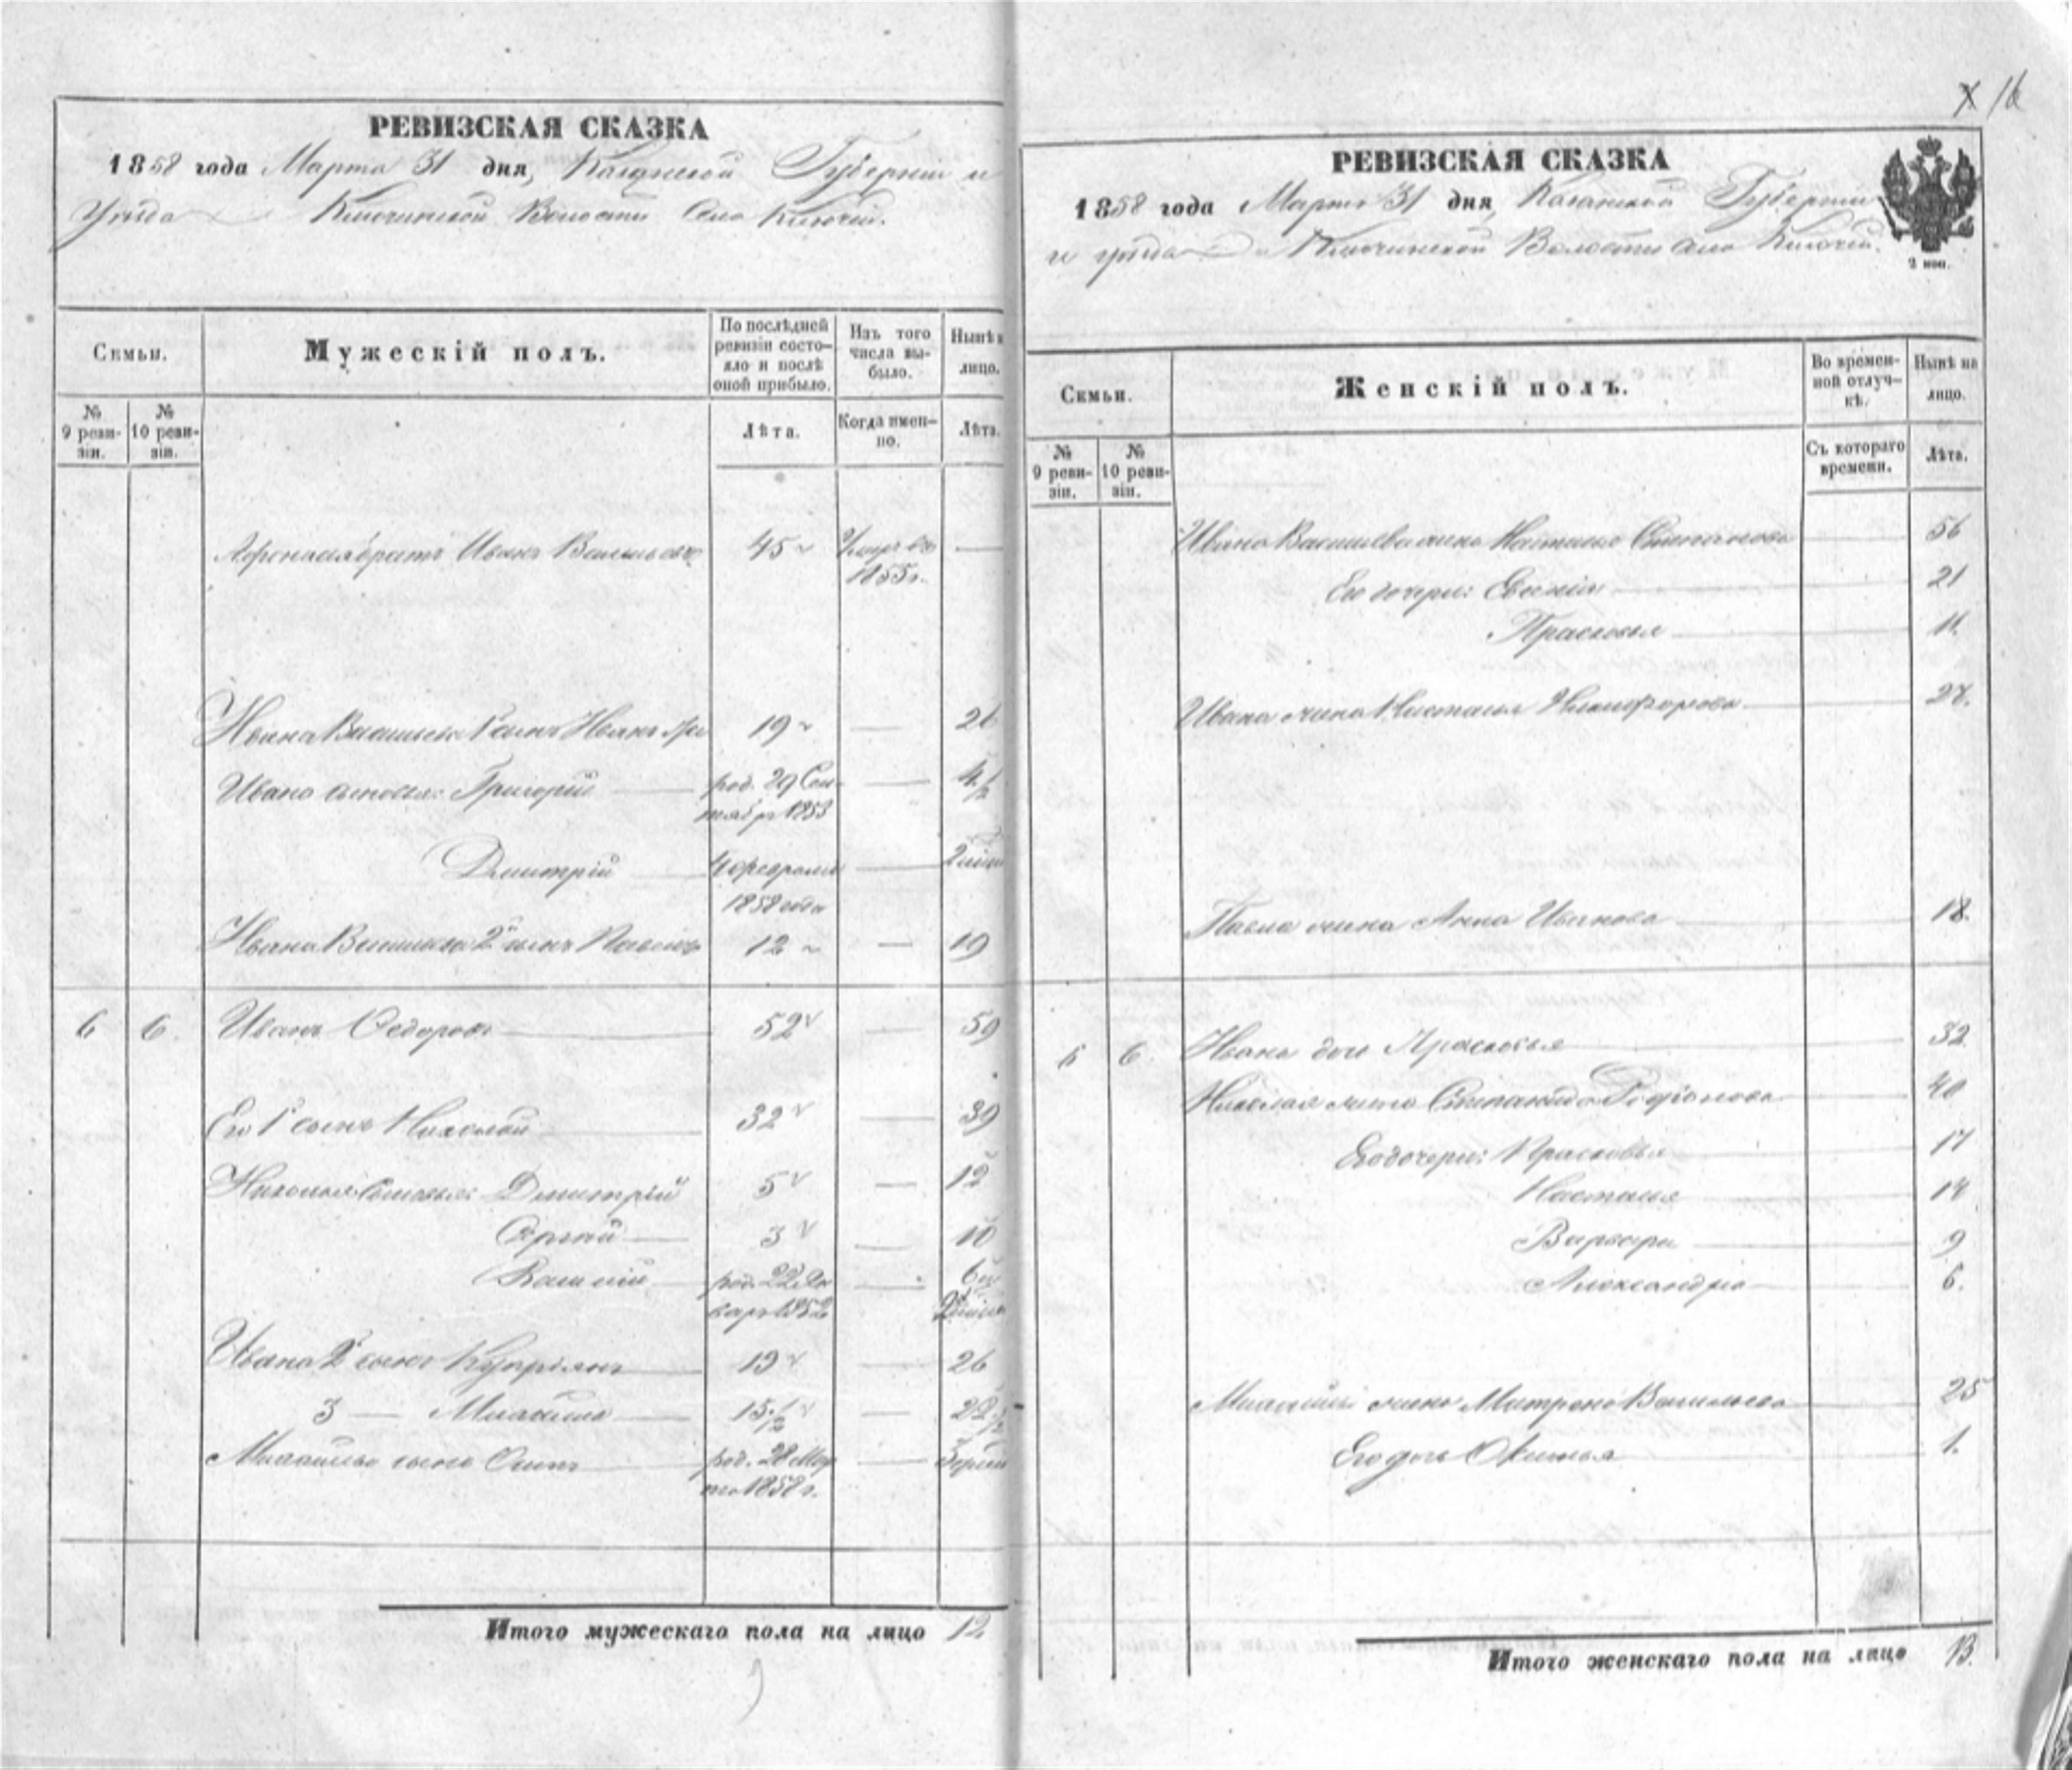 РЕВИЗСКАЯ СКАЗКА
1858 года Марта 31 дня, Казанской Губерніи и
уѣзда Ключинской Волости Села Ключей.
Семьи.
Мужескій полъ.
По послѣдней ревизіи состояло и послѣ оной прибыло.
Изъ того числа выбыло.
Нынѣ на лицо.
№ 9 ревизіи.
№ 10 ревизіи.
Лѣта.
Когда именно.
Лѣта.
братъ Иванъ Васильевъ 45 —
1855 г.
Ивана Васильева 1й сынъ Иванъ 19 — 26
Ивана сыновья: Григорій род. 29 Сен- — 4 1/2
тября 1853
Дмитрій 4 февраля —
1858 года
Ивана Васильева 2й сынъ Павелъ 12 — 19
6 6. Иванъ Федоровъ 52 — 59
Его 1й сынъ Николай 32 — 39
Николая сыновья: Дмитрій 5 — 12
Сергей 3 — 10
Василій род. 22 Ян- — 6
варя 1852
Ивана 2й сынъ Купріянъ 19 — 26
3 — Михайло 15 1/2 — 22 1/2
Михайлы сынъ Осипъ род. 28 Мар- —
та 1858 г.
Итого мужескаго пола на лицо 12
X 16
РЕВИЗСКАЯ СКАЗКА
1858 года Марта 31 дня, Казанской Губерніи
и уѣзда Ключинской Волости Села Ключей.
2 коп.
Семьи.
Женскій полъ.
Во временной отлучкѣ.
Нынѣ на лицо.
№ 9 ревизіи.
№ 10 ревизіи.
Съ котораго времени.
Лѣта.
Ивана Васильева жена Настасья Степанова 56
Его дочери: 21
Прасковья 11.
Ивана жена Настасья Никифорова 27.
Павла жена Анна Иванова 18.
6 6 Ивана дочь Прасковья 32
Николая жена Степанида 40
Его дочери: Прасковья 17
Настасья 14
Варвара 9
Александра 6.
Михайлы жена Матрена Васильева 25
Его дочь 1.
Итого женскаго пола на лицо 13.